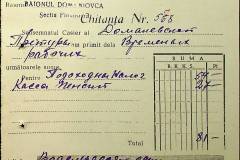 RAIONUL DOMANIOVCA
Secția Financiară
Chitanța Nr. 568
Subsemnatul Casier al Доманевской
Претуры am primit dela Временых
рабочих
următoarele sume.
SUMA
R.K.K.S. Pf.
Pentru Подоходный Налог 54 -
Касса Пенсий 27 -
Total 81 -